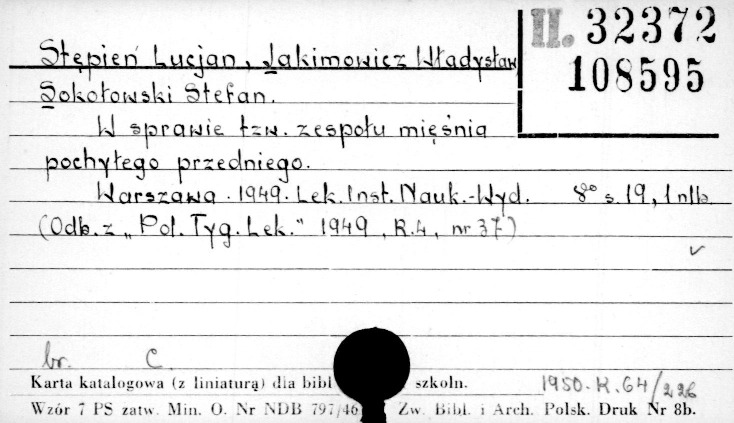 II. 32372
108595
Stępień Lucjan, Jakimowicz Władysław
Sokołowski Stefan.
W sprawie tzw. zespołu mięśnia
pochyłego przedniego.
Warszawa. 1949. Lek. Inst. Nauk.-Wyd. 8° s. 19, 1 nlb.
(Odb. z „Pol. Tyg. Lek." 1949, R.4, nr 37)
br. C.
Karta katalogowa (z liniaturą) dla bibl szkoln. 1950.K.64/226
Wzór 7 PS zatw. Min. O. Nr NDB 797/46 Zw. Bibl. i Arch. Polsk. Druk Nr 8b.